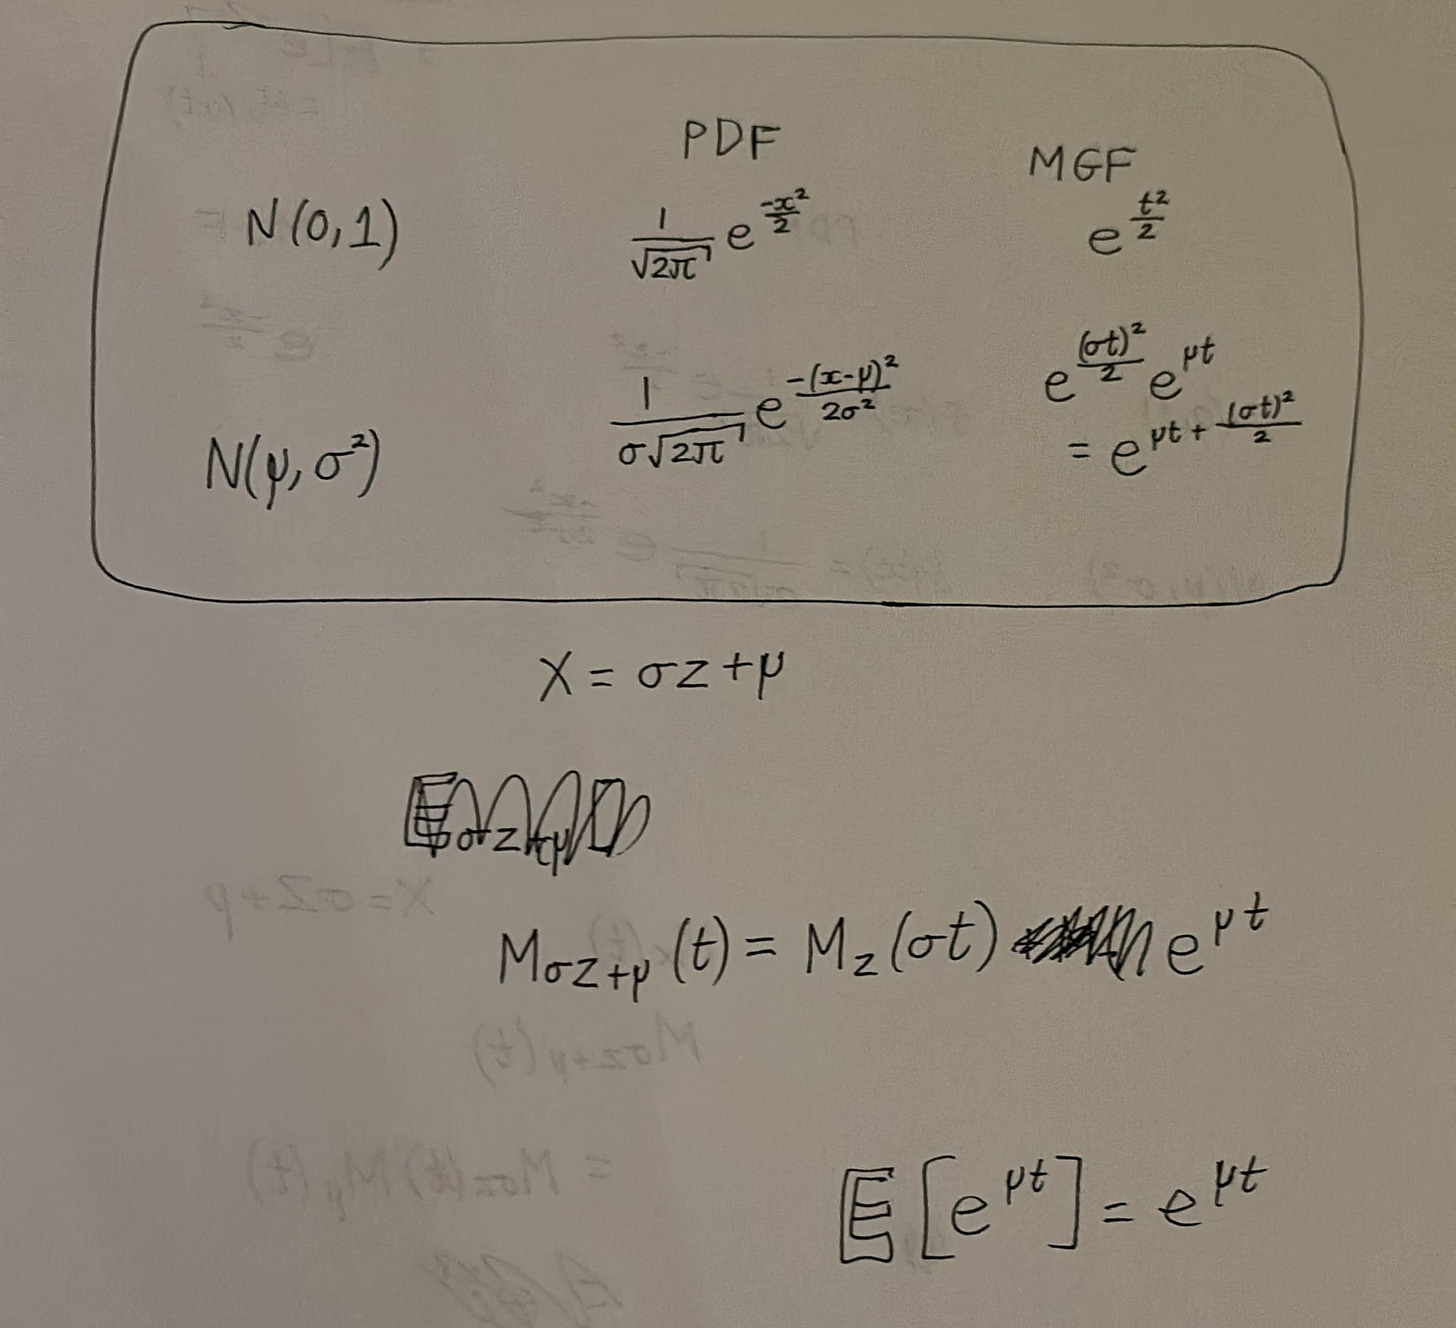 PDF MGF
N(0,1) 1/√2π e^(-x²/2) e^(t²/2)
N(μ,σ²) 1/(σ√2π) e^(-(x-μ)²/2σ²) e^((σt)²/2) e^(μt)
= e^(μt + (σt)²/2)
X = σz + μ
M_σz+μ (t) = M_z (σt) e^(μt)
𝔼[e^(μt)] = e^(μt)